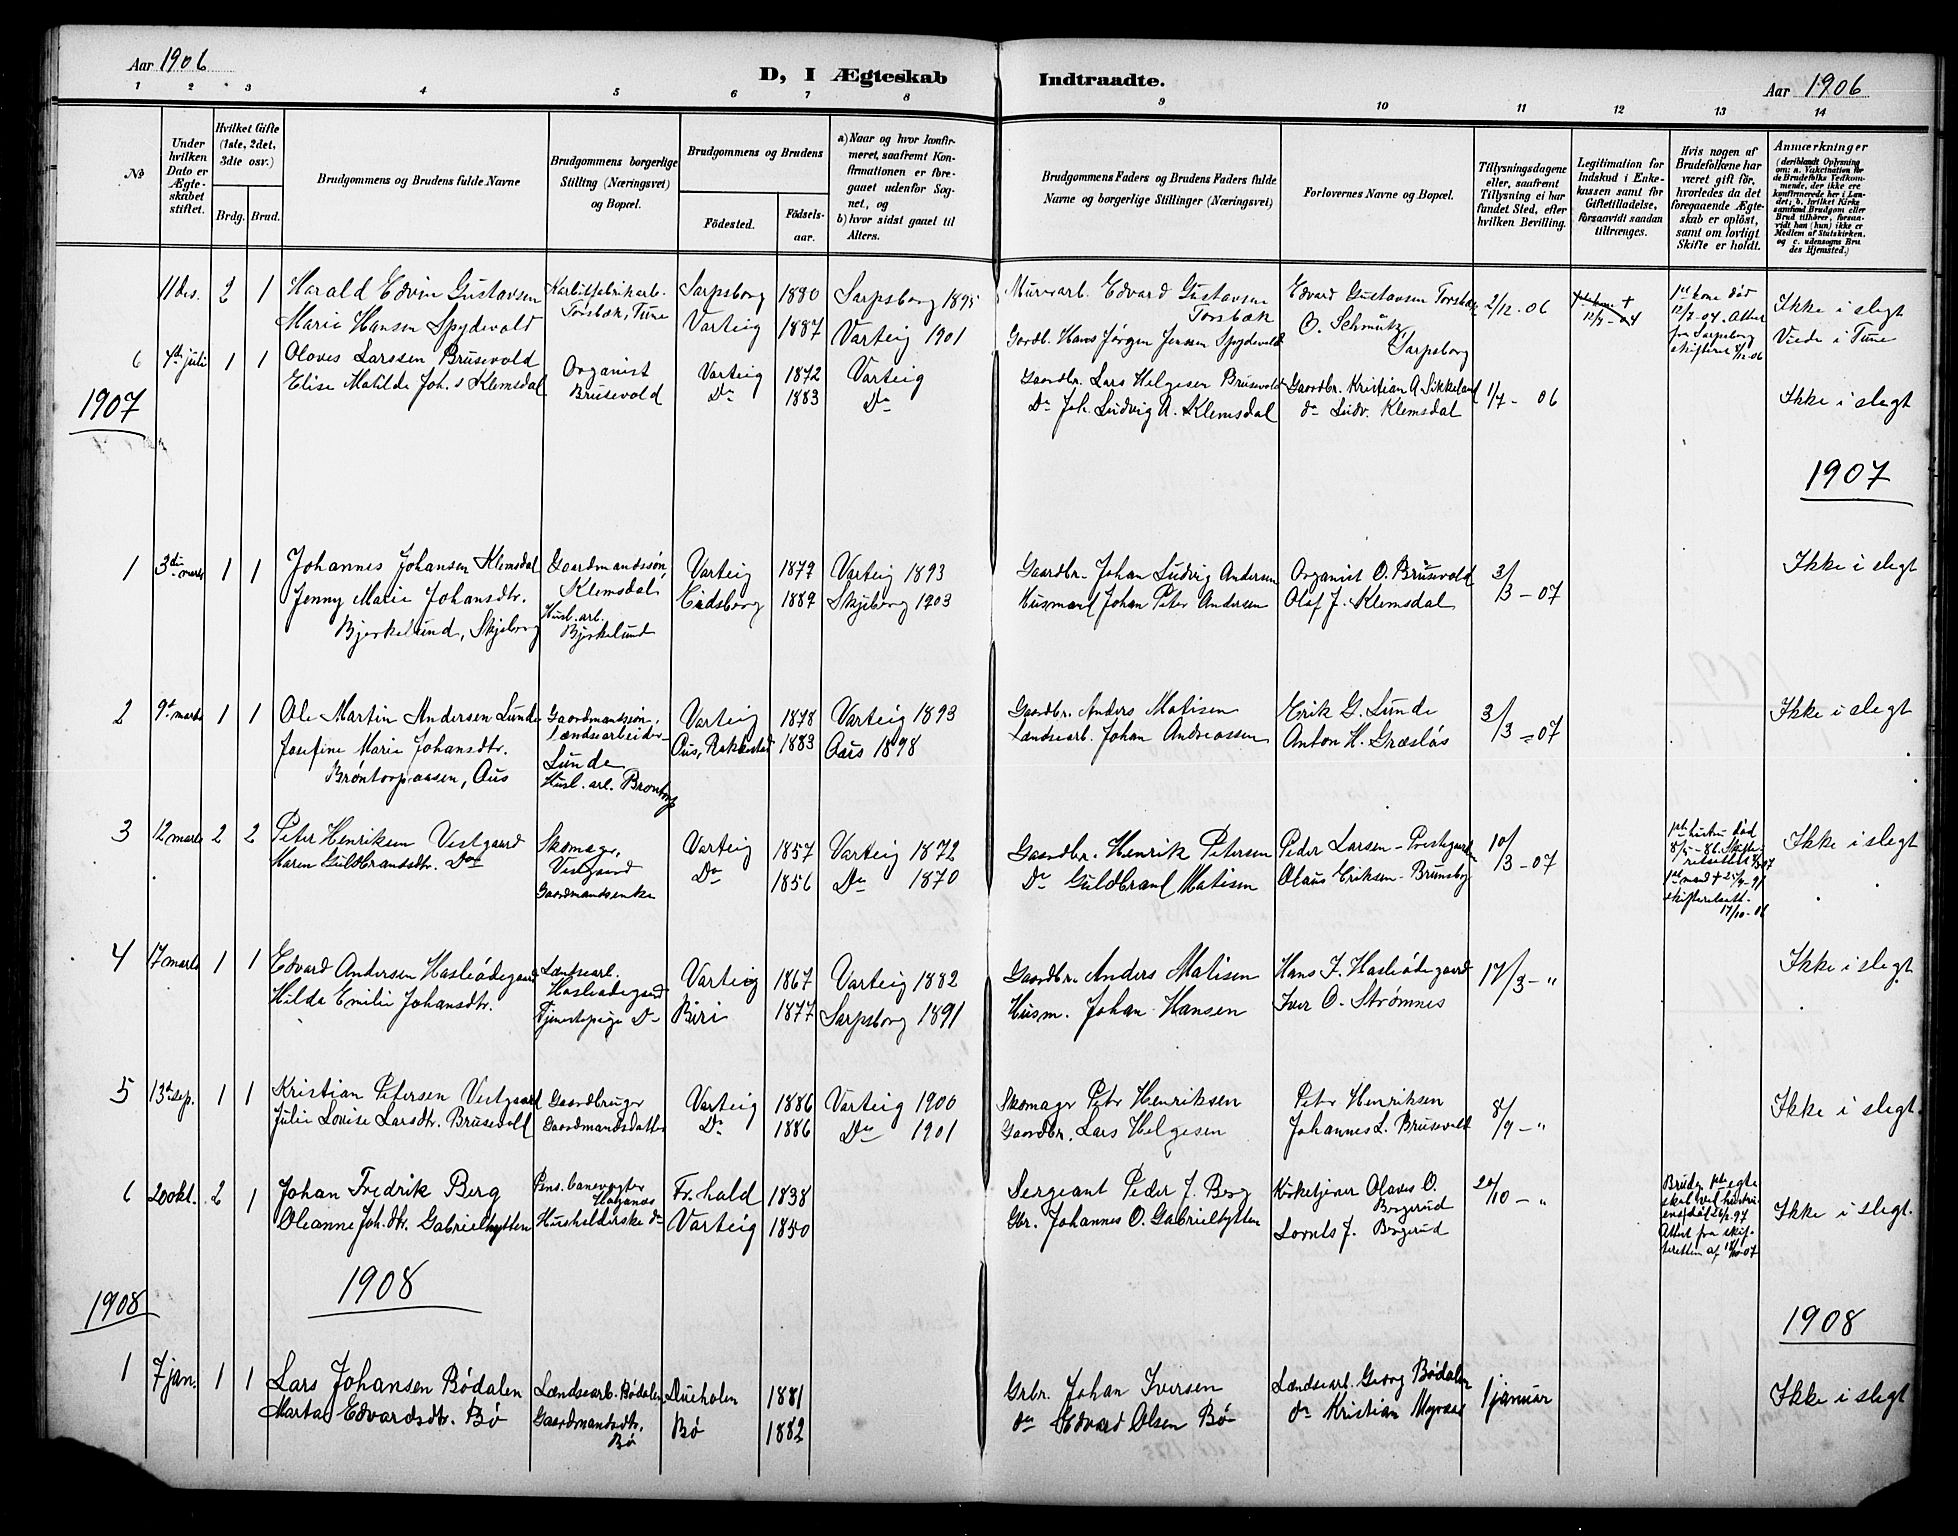 Aar 1906
D, I Ægteskab Indtraadte.
Aar 1906
1 2 3 4 5 6 7 8 9 10 11 12 13 14
No
Under hvilken Dato er Ægteskabet stiftet.
Hvilket Gifte (1ste, 2det, 3die osv.)
Brdg. Brud.
Brudgommens og Brudens fulde Navne
Brudgommens borgerlige Stilling (Næringsvei) og Bopæl.
Brudgommens og Brudens
Fødested. Fødselsaar.
a) Naar og hvor konfirmeret, saafremt Konfirmationen er foregaaet udenfor Sognet, og
b) hvor sidst gaaet til Alters.
Brudgommens Faders og Brudens Faders fulde Navne og borgerlige Stillinger (Næringsvei)
Forlovernes Navne og Bopæl.
Tillysningsdagene eller, saafremt Tillysning ei har fundet Sted, efter hvilken Bevilling.
Legitimation for Indskud i Enkekassen samt for Giftetilladelse, forsaavidt saadan tiltrænges.
Hvis nogen af Brudefolkene har været gift før, hvorledes da det foregaaende Ægteskab er opløst, samt om lovligt Skifte er holdt.
Anmærkninger
(deriblandt Oplysning om: a. Vakcination for de Brudefolks Vedkommende, der ikke ere konfirmerede her i Landet; b. hvilket Kirkesamfund Brudgom eller Brud tilhører, forsaavidt han (hun) ikke er Medlem af Statskirken, og c. udensogns Brudes Hjemsted.)
11 des. 2 1 Harald Edvin Gustavsen Karbitfabrikarb. Sarpsborg 1880 Sarpsborg 1895 Murerarb. Edvard Gustavsen Edvard Gustavsen Torsbæk 2/12-06 1ste kone død Ikke i slegt
Torsbæk, Tune Torsbæk 12/7-04 12/7-04. Attest
Marie Hansen Spydevold Varteig 1887 Varteig 1901 Gardb. Hans Jørgen Jensen Spydevold O. Schmütz Sarpsborg fra Sarpsborg Viede i Tune
6 4th juli 1 1 Olaves Larssen Brusevold Organist Varteig 1872 Varteig Gaardbr. Lars Helgesen Brusevold Gaardbr. Kristian A. Sikkeland 1/7-06
Elise Matilde Joh. d Klemsdal Brusevold Do 1883 Do Do Joh. Ludvig A. Klemsdal do Ludv. Klemsdal Ikke i slegt
1907
1907
1 3die marts 1 1 Johannes Johansen Klemsdal Gaardmandssøn, Varteig 1879 Varteig 1893 Gaardbr. Johan Ludvig Andersen Organist O. Brusevold 3/3-07 Ikke i slegt
Klemsdal,
Jenny Marie Johansdtr. Husb. arb. Eidsberg 1889 Skjeberg 1903 Husmand Johan Peter Andersen Olaf J. Klemsdal
Bjerkelund, Skjeberg Bjerkelund
2 9d marts 1 1 Ole Martin Andersen Lunde Gaardmandssøn, Varteig 1878 Varteig 1893 Gaardbr. Anders Matisen Erik G. Lunde 3/3-07 Ikke i slegt
Lændsearbeider
Josefine Marie Johansdtr. Lunde Aus, Rakkestad 1883 Aars 1898 Lændsearb. Johan Andreassen Anton H. Græsløs
Brøntorpaasen, Aus Husb. arb. Brøntorp
3 12 marts 2 2 Peter Henriksen Vestgaard Skomager, Varteig 1857 Varteig 1872 Gaardbr. Henrik Petersen Peder Larsen - Prestegaarden 10/3-07 1ste hustru død Ikke i slegt
Vestgaard 8/5-86.
Maren Guldbrandsdtr. Do Gaardmandsenke Do 1856 Do 1870 Do Guldbrand Matisen Olaus Eriksen - Brunsby 1ste mand † 25/9-91
17/10-06
4 17 marts 1 1 Edvard Andersen Hasleødegaard Lændsearb. Varteig 1867 Varteig 1882 Gaardbr. Anders Matisen Hans J. Hasleødegaard 17/3-" Ikke i slegt.
Hasleødegaard
Hilda Emilie Johansdtr. Tjenestepige Do Biri 1877 Sarpsborg 1891 Husm. Johan Hansen Iver O. Strømnes
5 13de sep. 1 1 Kristian Petersen Vestgaard Gaardbruger Varteig 1886 Varteig 1900 Skomager Petr Henriksen Peter Henriksen 8/9-" Ikke i slegt.
Julie Lovise Larsdtr. Brusevold Gaardmandsdatter Do 1886 Do 1901 Gaardbr. Lars Helgesen Johannes L. Brusevold
6 20 okt. 2 1 Johan Fredrik Berg Pens. banevogter Fr. hald 1838 Sergeant Peder J. Berg Kirketjener Olaves O. Borgerud 20/10-" Brudg. 1ste egteskab ved hustruens død 26/2-97 Ikke i slegt.
Oleanne Joh. dtr. Gabrielhytten Husholderske do Varteig 1850 Gbr. Johannes O. Gabrielhytten J. Borgerud Attest fra skifteretten af 14/10-07
1908
1908
1908
1 7 jan. 1 1 Lars Johansen Bødalen Lændsearb. Bødalen Dueholen 1881 Grbr. Johan Iversen Lændsearb. Georg Bødalen 1 januar Ikke i slegt
Marta Edvardsdtr. Bø Gaardmandsdtr. Bø Bø 1882 do Edvard Olsen Bø do Kristian Myraas